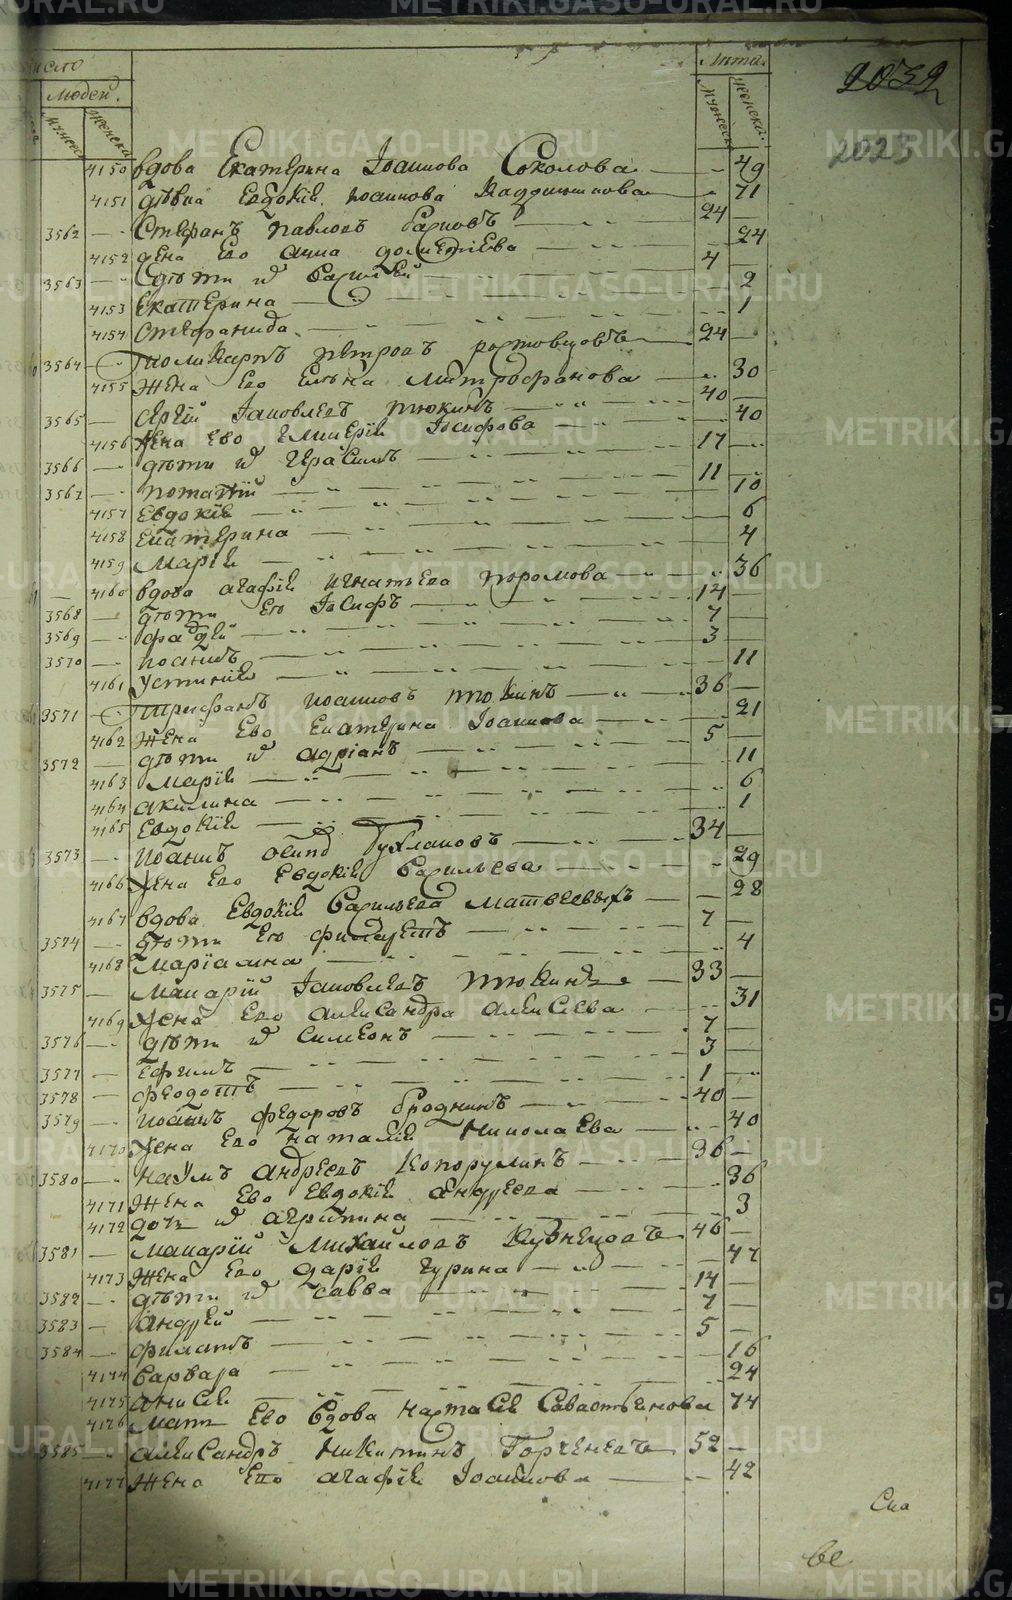 METRIKI.GASO-URAL.RU
число
людей.
Лѣта.
2032
мужеска
женска
мужеска
женска.
2023
4150 вдова Екатерина Іоаннова Соколова — 49
4151 дѣвка Евдокія Иоаннова 71
3562 Стефанъ Павловъ 24
4152 жена Ево Анна дометіева 24
3563 дѣти их Василей 4
4153 Екатерина 2
4154 Стефанида 1
3564 Поликарпъ Петровъ Ростовцовъ 24
4155 Жена Ево Елена Митрофанова 30
3565 Сергій Іаковлевъ Пюкинъ 40
4156 жена Ево Гликерія Іосифова 40
3566 дѣти их Герасимъ 17
3567 Потапій 11
4157 Евдокія 10
4158 Екатерина 6
4159 Марія 4
4160 вдова Агафія Игнатьева 36
3568 дѣти Ею Іосифъ 14
3569 Фадей 7
3570 Иоаннъ 3
4161 Устинія 11
3571 Трифанъ Иоанновъ Пюкинъ 36
4162 Жена Ево Екатерина Іоаннова 21
3572 дѣти их Адріанъ 5
4163 Марія 11
4164 Акилина 6
4165 Евдокія 1
3573 Иоаннъ 34
4166 Жена Ево Евдокія Васильева 29
4167 вдова Евдокія Васильева 28
3574 дѣти Ею Филаретъ 7
4168 Маріамна 4
3575 Макарій Іаковлевъ Пюкинъ 33
4169 Жена Ево Александра Алексіева 31
3576 дѣти их Симеонъ 7
3577 Ефимъ 3
3578 Феодотъ 1
3579 Иоаннъ Федоровъ Бродникъ 40
4170 Жена Ево Наталія Николаева 40
3580 Наумъ Андреевъ Копорулинъ 36
4171 Жена Ево Евдокія Андреева 36
4172 дочь их Агрипина 3
3581 Макарій Михайловъ Кузнецовъ 46
4173 Жена Ево Дарія Гурина 47
3582 дѣти их Савва 14
3583 Андрей 7
3584 Филатъ 5
4174 Варвара 16
4175 Анисія 24
4176 Мать Ево вдова Настасія Савастьянова 74
3585 Александръ Никитинъ 52
4177 Жена Ево Агафія Іоаннова 42
METRIKI.GASO-URAL.RU